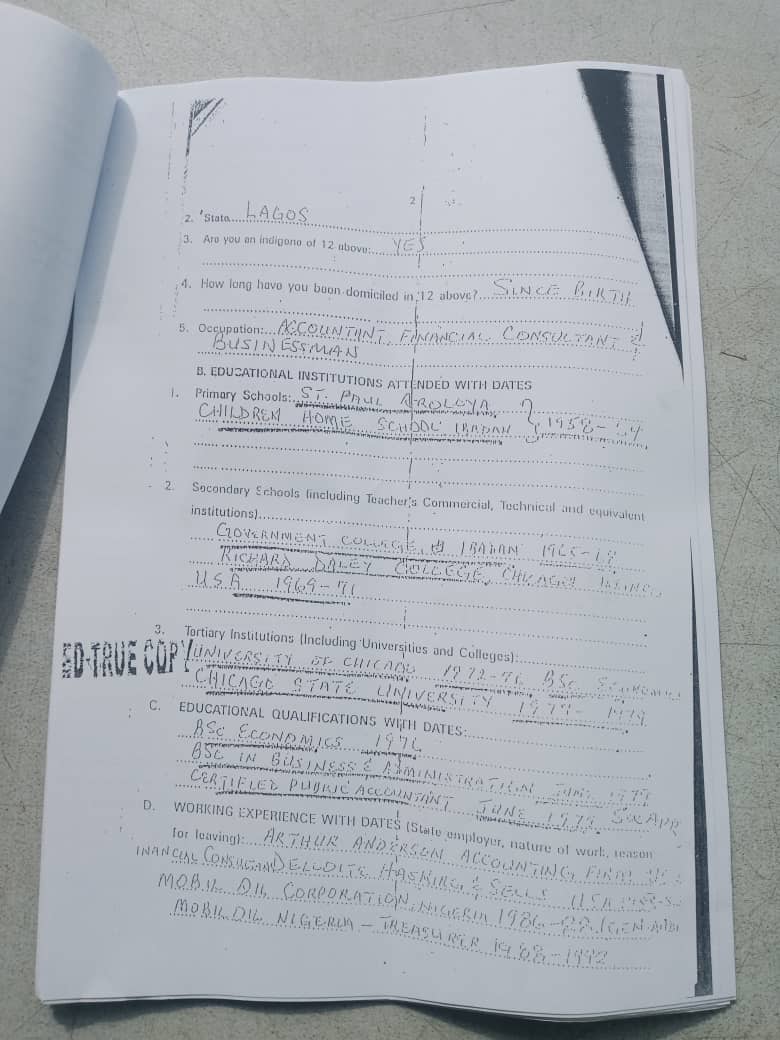 2
2. State....LAGOS
3. Are you an indigene of 12 above:....YES
4. How long have you been domiciled in 12 above?...SINCE BIRTH
5. Occupation:...ACCOUNTANT, FINANCIAL CONSULTANT &
BUSINESSMAN
B. EDUCATIONAL INSTITUTIONS ATTENDED WITH DATES
1. Primary Schools:..ST. PAUL AROLOYA
CHILDREN HOME SCHOOL IBADAN } 1958-64
2. Secondary Schools (including Teacher's Commercial, Technical and equivalent
institutions)
GOVERNMENT COLLEGE, IBADAN 1965-68
RICHARD DALEY COLLEGE, CHICAGO
U.S.A 1969-71
3. Tertiary Institutions (Including Universities and Colleges):
ED TRUE COPY
UNIVERSITY OF CHICAGO 1972-76 BSC ECONOMICS
CHICAGO STATE UNIVERSITY 1977- 1979
C. EDUCATIONAL QUALIFICATIONS WITH DATES:
BSC ECONOMICS 1976
BSC IN BUSINESS & ADMINISTRATION JUNE 1979
CERTIFIED PUBLIC ACCOUNTANT JUNE 1979.
D. WORKING EXPERIENCE WITH DATES (State employer, nature of work, reason
for leaving):..ARTHUR ANDERSON ACCOUNTING FIRM
INANCIAL CONSULTANT DELLOITE HASKINS & SELLS USA
MOBIL OIL CORPORATION, NIGERIA 1986-88
MOBIL OIL NIGERIA - TREASURER 1988-1992